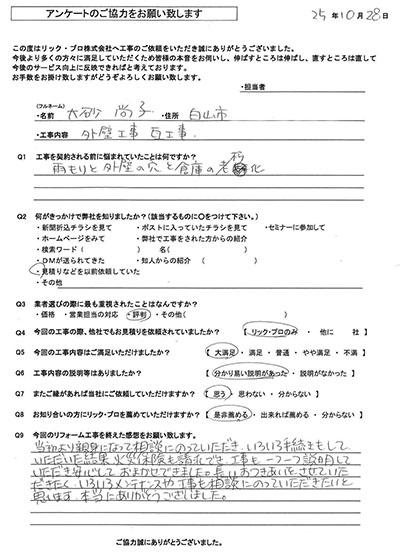 アンケートのご協力をお願い致します
25年10月28日
この度はリック・プロ株式会社へ工事のご依頼をいただき誠にありがとうございました。
今後より多くの方々に満足していただくため皆様の本音をお伺いし、伸ばすところは伸ばし、直すところは直して
今後のサービス向上に反映できればと考えております。
お手数をお掛け致しますがどうぞよろしくお願い致します。
・担当者
(フルネーム)
・名前 大砂 尚子 ・住所 白山市
・工事内容 外壁工事 瓦工事.
Q1 工事を契約される前に悩まれていたことは何ですか?
雨もりと外壁の穴と倉庫の老朽化
Q2 何がきっかけで弊社を知りましたか?(該当するものに○をつけて下さい。)
・新聞折込チラシを見て ・ポストに入っていたチラシを見て ・セミナーに参加して
・ホームページをみて ・弊社で工事をされた方からの紹介
・検索ワード( ) 名( )
・DMが送られてきた ・知人からの紹介 ( )
・見積りなどを以前依頼していた
・その他
Q3 業者選びの際に最も重視されたことはなんですか?
・価格 ・営業担当の対応 ・評判 ・その他( )
Q4 今回の工事の際、他社でもお見積りを依頼されていましたか? 【 リック・プロのみ ・ 他に 社 】
Q5 今回の工事内容はご満足いただけましたか? 【 大満足 ・ 満足 ・ 普通 ・ やや満足 ・ 不満 】
Q6 工事内容の説明等はありましたか? 【 分かり易い説明があった ・ 説明がなかった 】
Q7 またご縁があれば当社にご依頼していただけますか? 【 思う ・ 思わない ・ 分からない 】
Q8 お知り合いの方にリック・プロを薦めていただけますか? 【 是非薦める ・ 出来れば薦める ・ 分からない 】
Q9 今回のリフォーム工事を終えた感想をお願い致します。
当初より親身になって相談にのっていただき、いろいろ手続きもして
いただいた結果火災保険も請求でき、工事も一つ一つ説明して
いただき安心しておまかせできました。長いおつきあいをさせていた
だきたく、いろいろメンテナンスや工事も相談にのっていただきたいと
思います。本当にありがとうございました。
ご協力誠にありがとうございました。